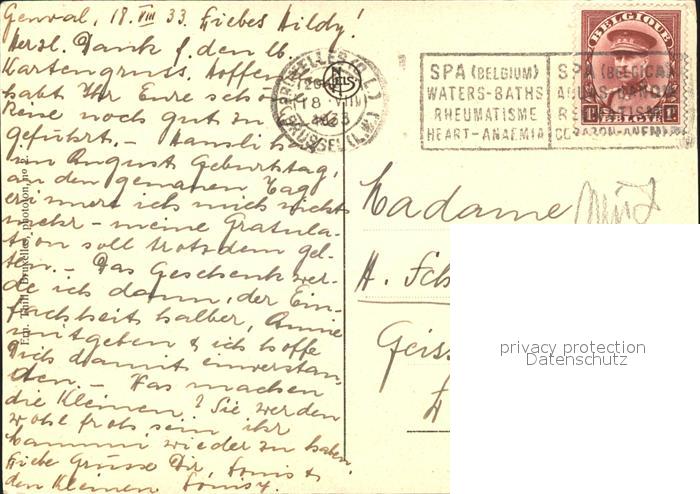 Genval, 18. VIII 33. Liebes Hildy!
Herzl. Dank f. den lb.
Kartengruss. Hoffentl.
habt Ihr Eure schöne
Reise noch gut zu
geführt. – Hansli hat
im August Geburtstag,
an den genauen Tag
erinnere ich mich nicht
mehr – meine Gratula-
tion soll trotzdem gel-
ten. – Das Geschenk wer-
de ich dann, der Ein-
fachheit halber, Annie
mitgeben & ich hoffe
Dich damit einverstan-
den. – Was machen
die Kleinen? Sie werden
wohl froh sein ihr
Mammi wieder zu haben.
Liebe Grüsse Dir, Louis &
den Kleinen Louisy.
Ern. Thill, Bruxelles, phototon, no 2
BRUXELLES (Q.L.)
18 VIII
1933
BRUSSEL (L.W.)
SPA (BELGIUM)
WATERS-BATHS
RHEUMATISME
HEART-ANAEMIA
SPA (BELGICA)
CORAZON-ANEMIA
BELGIQUE
Madame
H. Sch
Geiss
privacy protection
Datenschutz